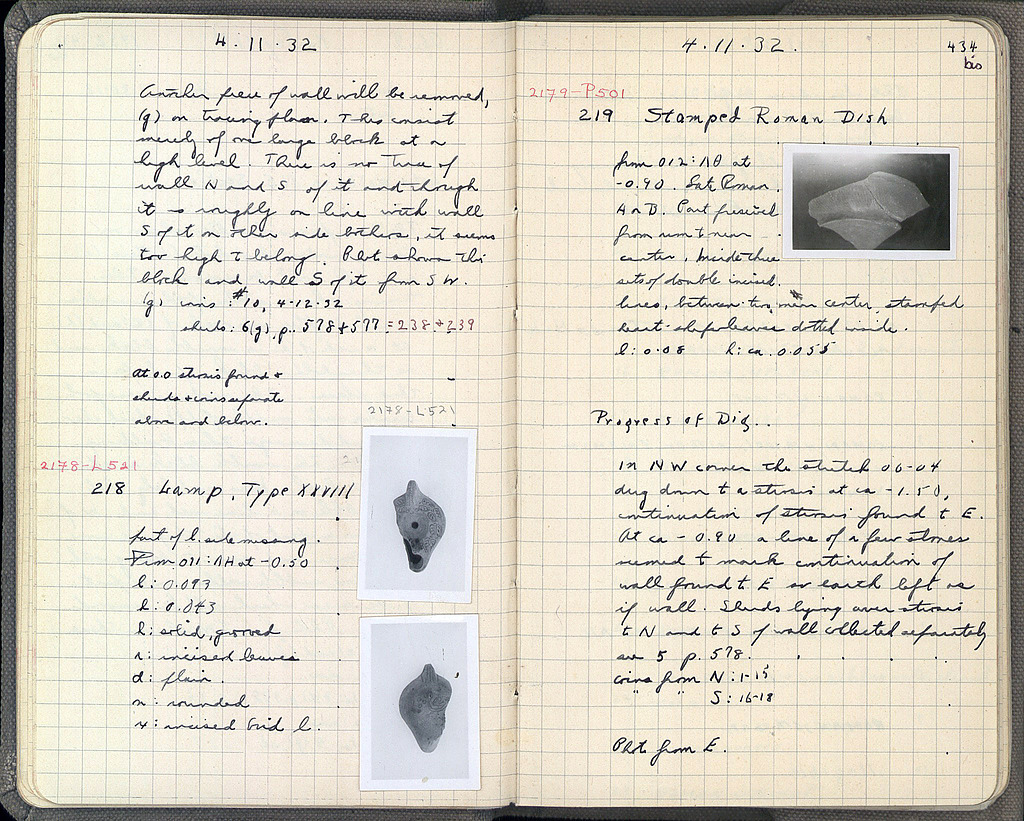 4.11.32
Another piece of wall will be removed,
(g) on tracing plan. This consist
merely of one large block at a
high level. There is no trace of
wall N and S of it and though
it is roughly on line with wall
S of it on other side bothros, it seems
too high to belong. Phot shows this
block and wall S of it from SW.
(g) coins: #10, 4-12-32
sherds: 6(g), p. 578 & 577 = 238 & 239
At 0.0 strosis found &
sherds & coins separate
above and below.
2178-L521
2178-L521
218 Lamp, Type XXVIII
part of l. side missing.
From 011:ΛH at -0.50
l: 0.093
h: 0.043
h: solid, grooved
r: incised leaves
d: plain.
n: rounded
x: incised
4.11.32.
434
bis
2179-P501
219 Stamped Roman Dish
from 012:ΛΘ at
-0.90. Late Roman.
A or B. Part preserved
from rim to near
center. Inside three
sets of double incised
lines, between two, near center, stamped
heart-shape leaves dotted inside.
l: 0.08 h: ca. 0.055
Progress of Dig..
In NW corner the stretch 06-04
dug down to a strosis at ca -1.50,
continuation of strosis found to E.
At ca -0.90 a line of a few stones
seemed to mark continuation of
wall found to E so earth left as
if wall. Sherds lying over strosis
to N and to S of wall collected separately
see 5 p. 578.
coins from N: 1-15
" " S: 16-18
Phot from E.